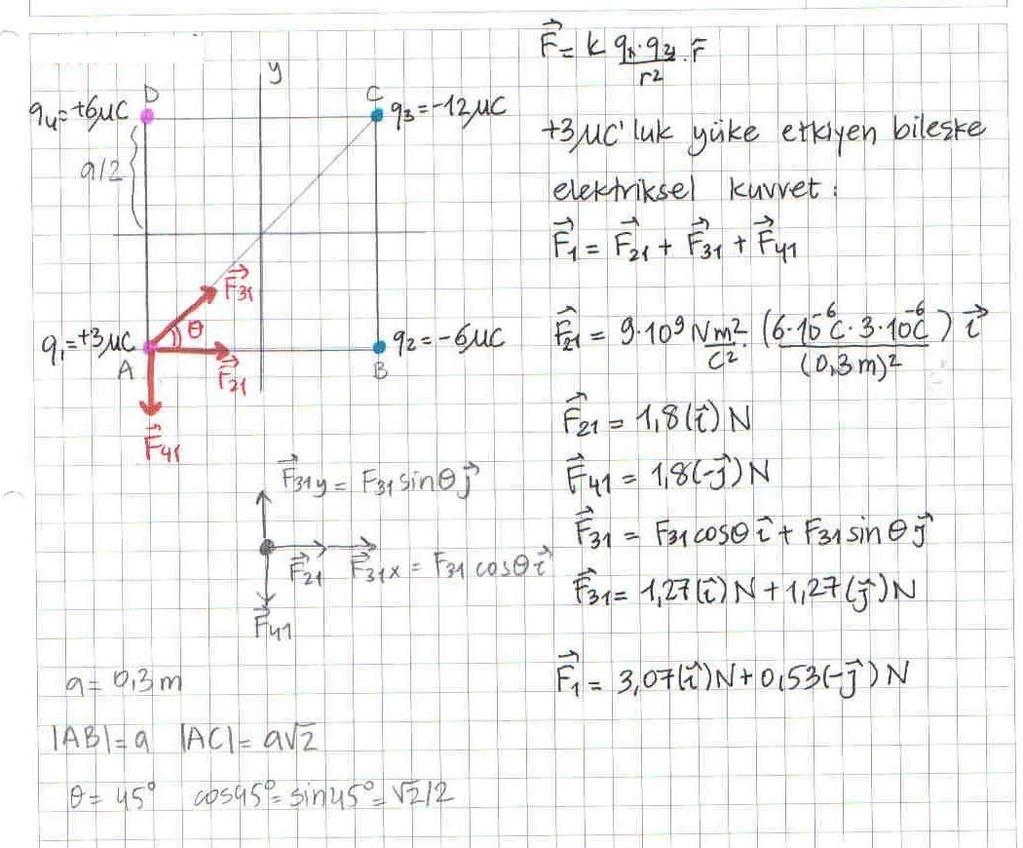 F⃗ = k q₁.q₂/r² . r̄
+3μC'luk yüke etkiyen bileşke
elektriksel kuvvet:
F⃗₁ = F⃗₂₁ + F⃗₃₁ + F⃗₄₁
F⃗₂₁ = 9.10⁹ Nm²/C² . (6.10⁻⁶C . 3.10⁻⁶C)/(0,3m)² i⃗
F⃗₂₁ = 1,8(i⃗) N
F⃗₄₁ = 1,8(-j⃗) N
F⃗₃₁ = F₃₁ cosθ i⃗ + F₃₁ sinθ j⃗
F⃗₃₁ = 1,27(i⃗) N + 1,27(j⃗) N
F⃗₁ = 3,07(i⃗) N + 0,53(-j⃗) N
y
D
q₄=+6μC
C
q₃=-12μC
a/2
F⃗₃₁
θ
q₁=+3μC
A
F⃗₂₁
q₂=-6μC
B
F⃗₄₁
F⃗₃₁y = F₃₁ sinθ j⃗
F⃗₂₁
F⃗₃₁x = F₃₁ cosθ i⃗
F⃗₄₁
a = 0,3m
|AB| = a |AC| = a√2
θ = 45° cos45° = sin45° = √2/2